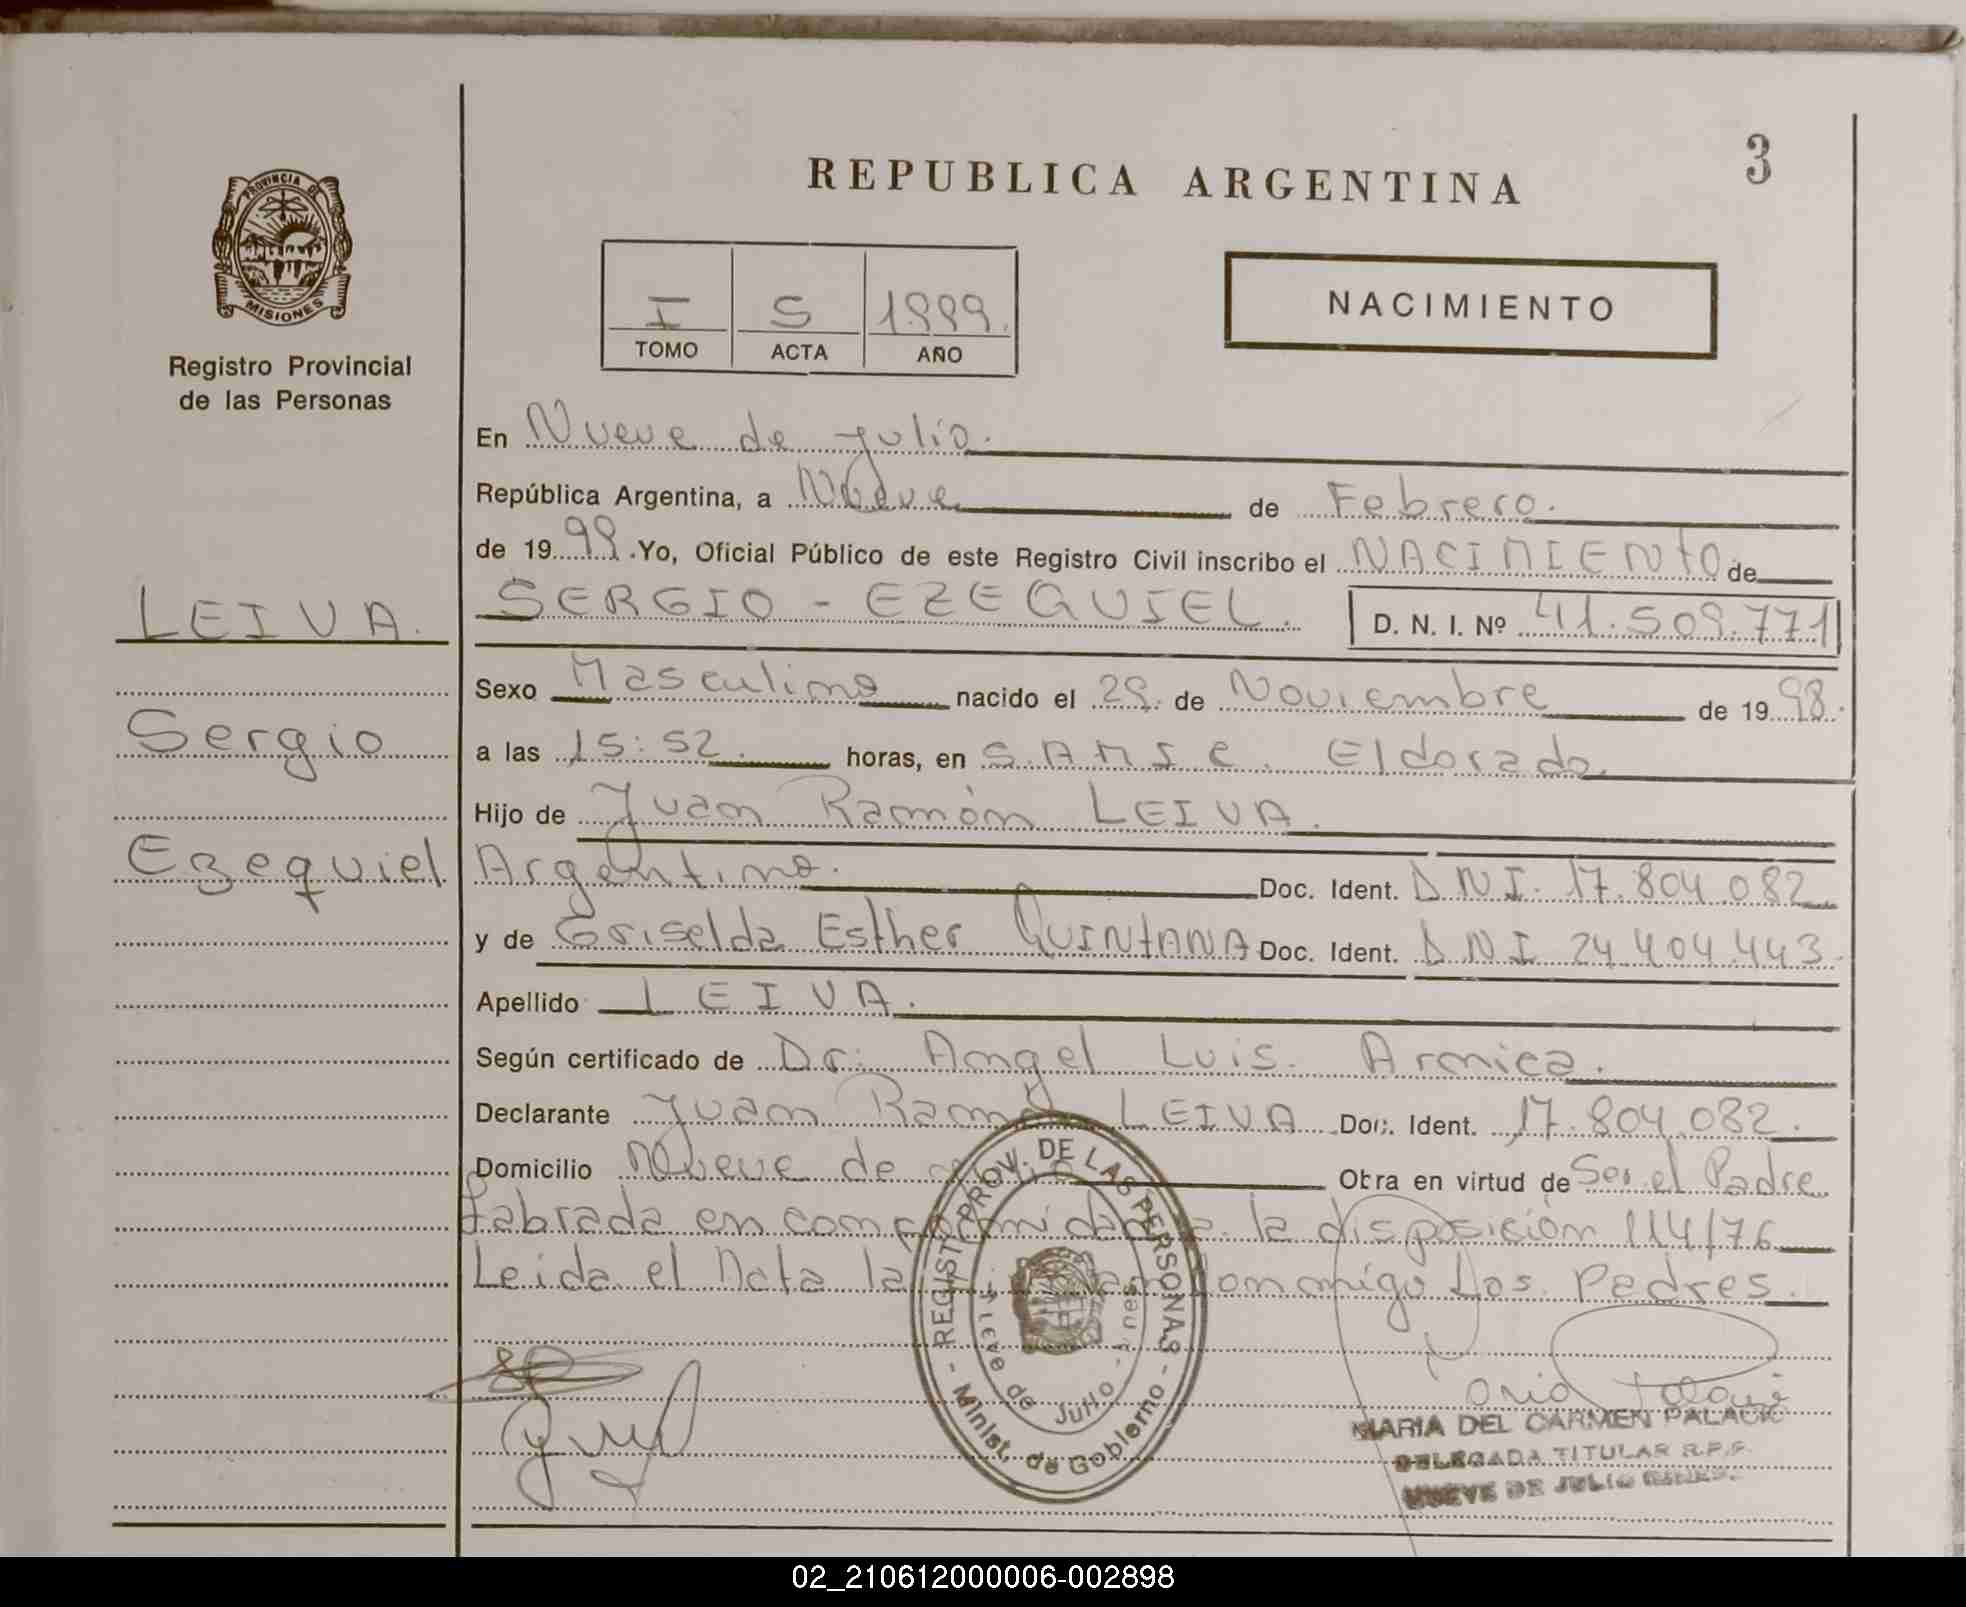 REPUBLICA ARGENTINA
3
PROVINCIA DE
MISIONES
Registro Provincial
de las Personas
I S 1999.
TOMO ACTA AÑO
NACIMIENTO
En Nueve de julio.
República Argentina, a Nueve de Febrero.
de 1999. Yo, Oficial Público de este Registro Civil inscribo el NACIMIENTO de
LEIVA.
SERGIO - EZEQUIEL. D. N. I. Nº 41.509.771
Sexo Masculino nacido el 29. de Noviembre de 1998.
Sergio
a las 15:52. horas, en S.A.M.I.C. Eldorado.
Hijo de Juan Ramón LEIVA.
Ezequiel
Argentino. Doc. Ident. D.N.I. 17.804.082
y de Griselda Esther QUINTANA Doc. Ident. D.N.I 24.404.443.
Apellido LEIVA.
Según certificado de Dr. Angel Luis. Arnica.
Declarante Juan Ramón LEIVA Doc. Ident. 17.804.082.
Domicilio Nueve de Obra en virtud de Ser el Padre
Labrada en la disposición 114/76
Leida el Acta la conmigo Los Padres.
REGIST. PROV. DE LAS PERSONAS
Minist. de Gobierno
Nueve de Julio - Mnes.
MARIA DEL CARMEN PALACIO
DELEGADA TITULAR R.P.P.
NUEVE DE JULIO MNES.
02_210612000006-002898